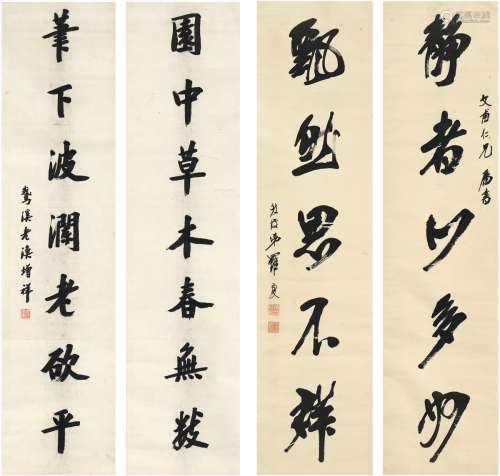 靜者心多妙
文甫仁兄屬書
飄然思不群
弟羅
園中草木春無數
筆下波瀾老欲平
溪老漁增祥